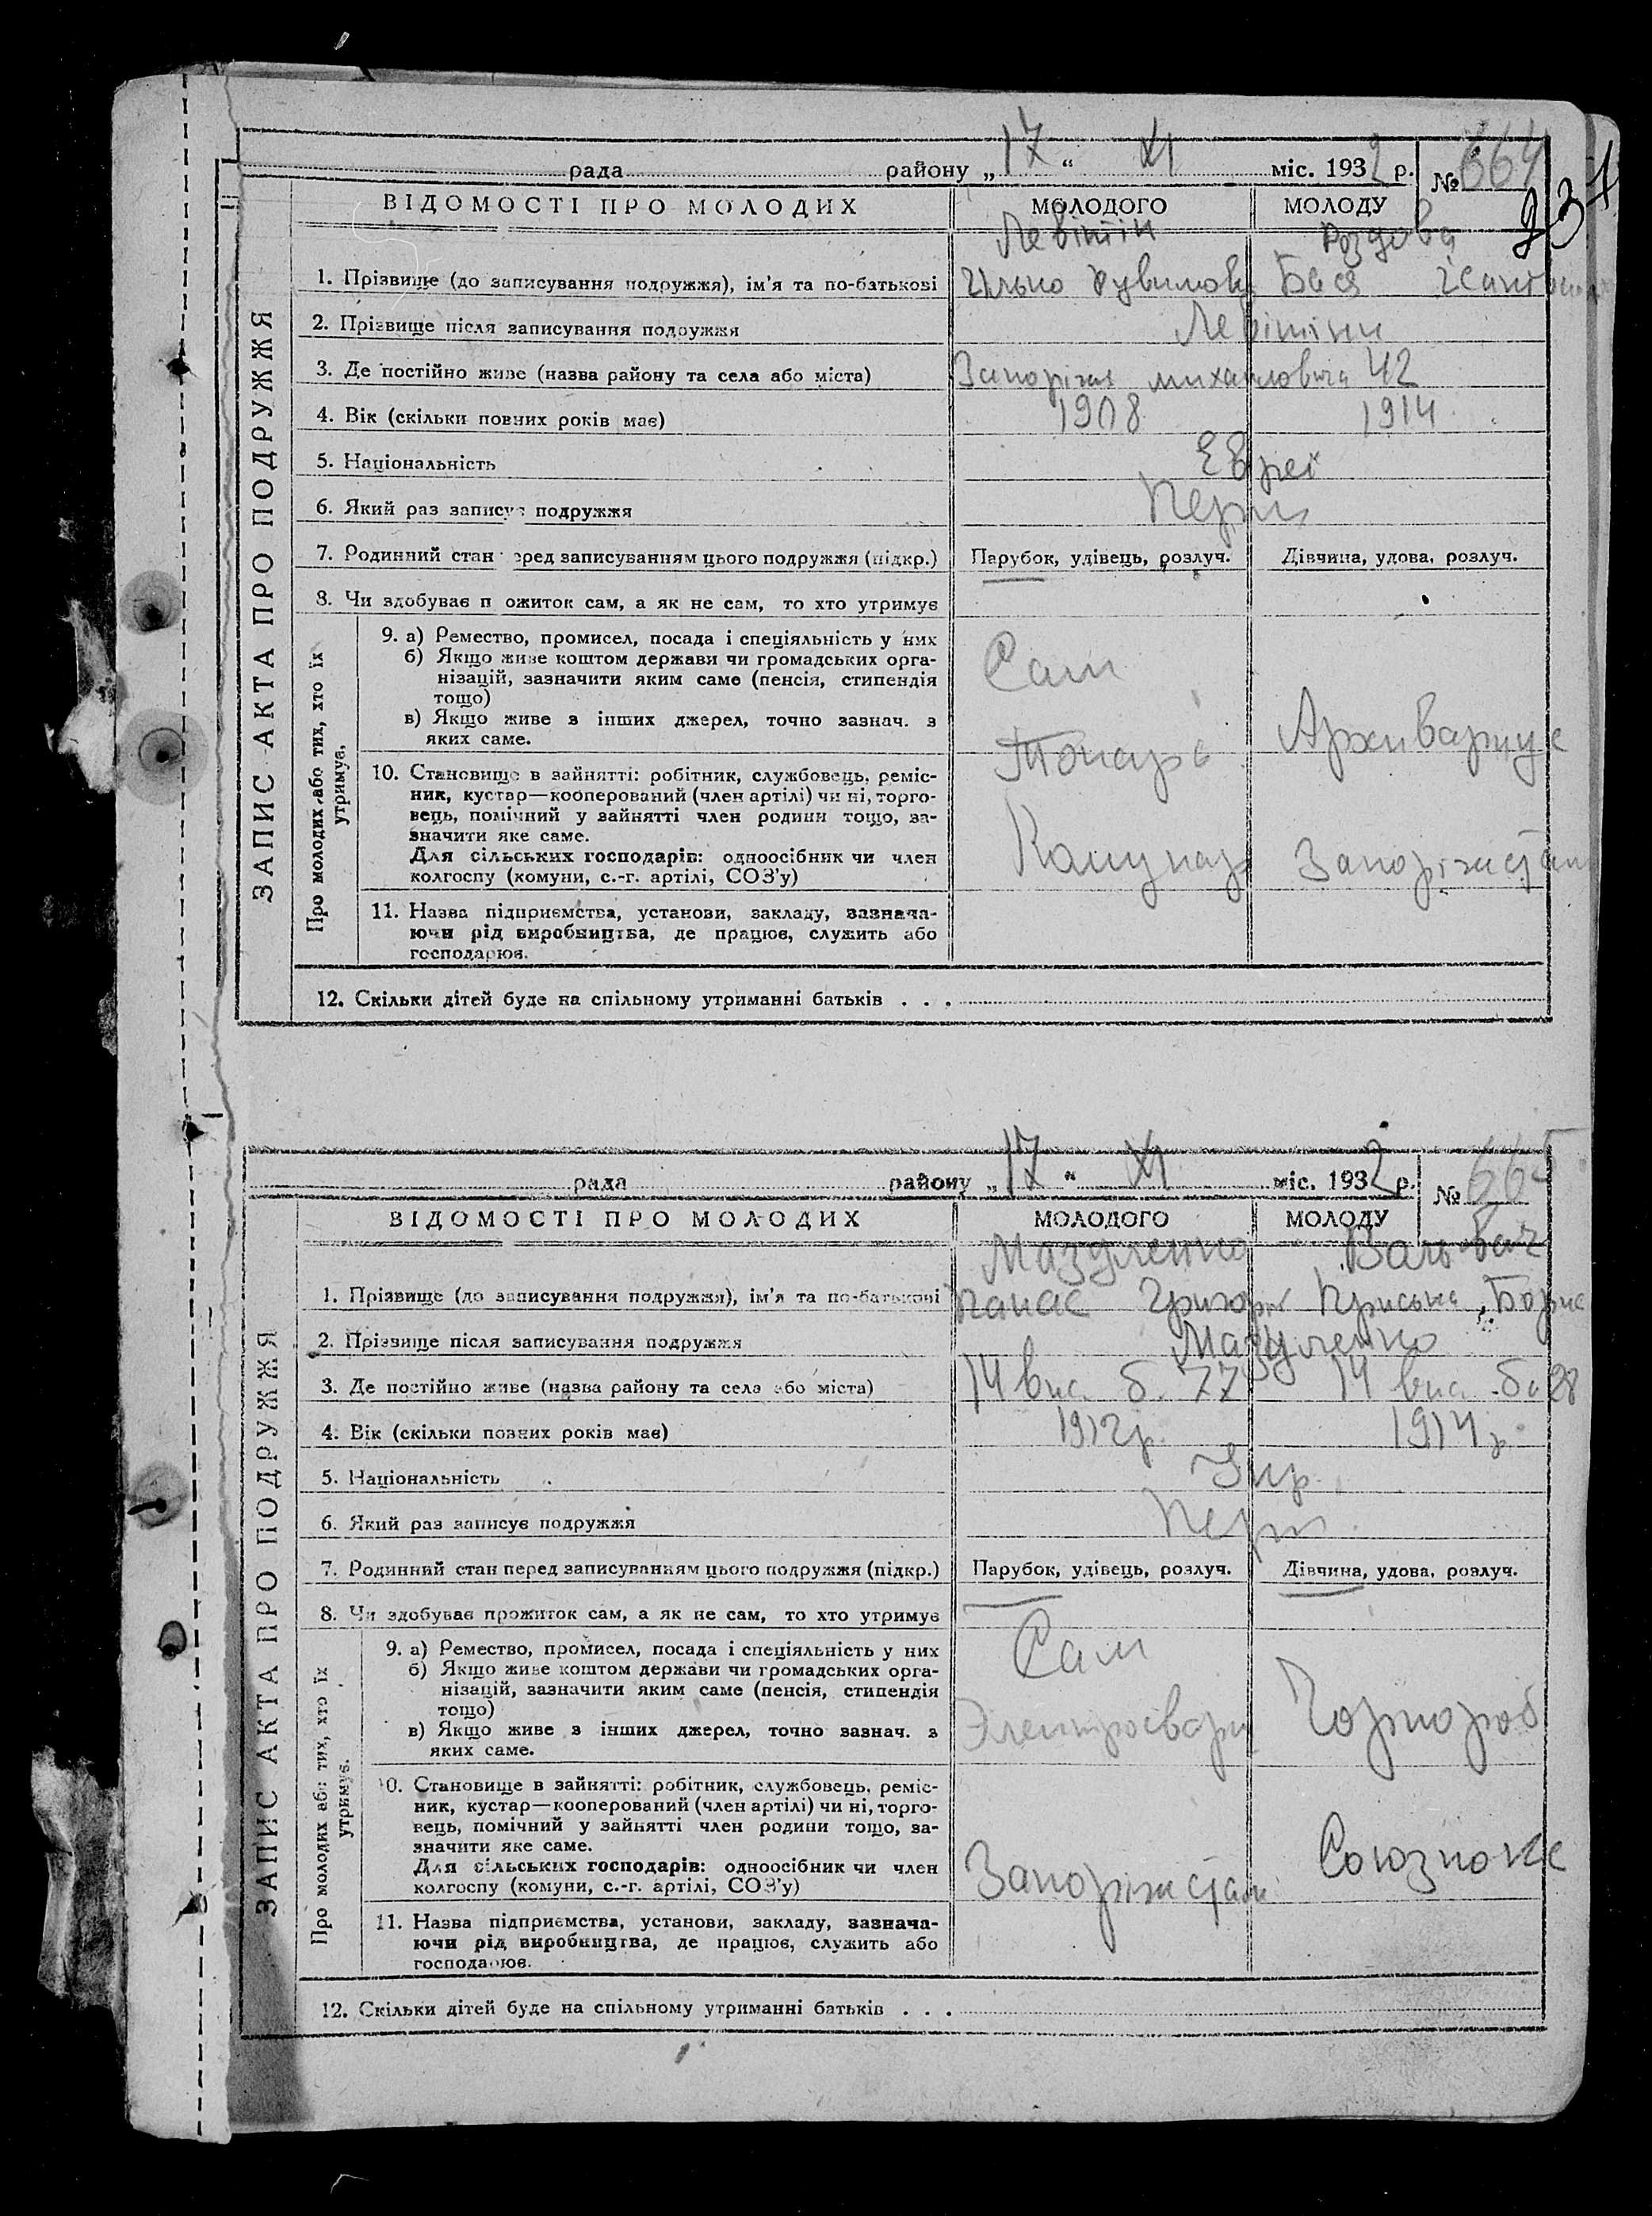 рада району „17 “ XI міс. 1932 р. № 664
231
ВІДОМОСТІ ПРО МОЛОДИХ МОЛОДОГО МОЛОДУ
ЗАПИС АКТА ПРО ПОДРУЖЖЯ
Левітін
1. Прізвище (до записування подружжя), ім'я та по-батькові Ілько Рувимов Бася
2. Прізвище після записування подружжя Левітіни
3. Де постійно живе (назва району та села або міста) Запоріжжя михайловича 42
4. Вік (скільки повних років має) 1908 1914
5. Національність Євреї
6. Який раз записує подружжя Перш
7. Родинний стан перед записуванням цього подружжя (підкр.) Парубок, удівець, розлуч. Дівчина, удова, розлуч.
8. Чи здобуває п ожиток сам, а як не сам, то хто утримує
Про молодих або тих, хто їх утримує.
9. а) Ремество, промисел, посада і спеціяльність у них
б) Якщо живе коштом держави чи громадських орга-
нізацій, зазначити яким саме (пенсія, стипендія
тощо)
Сам
в) Якщо живе з інших джерел, точно зазнач. з
яких саме.
Токарь Архиваріус
10. Становище в зайнятті: робітник, службовець, реміс-
ник, кустар—кооперований (член артілі) чи ні, торго-
вець, помічний у зайнятті член родини тощо, за-
значити яке саме.
Для сільських господарів: одноосібник чи член
колгоспу (комуни, с.-г. артілі, СОЗ'у)
Комунар Запоріжсталь
11. Назва підприємства, установи, закладу, зазнача-
ючи рід виробництва, де працює, служить або
господарює.
12. Скільки дітей буде на спільному утриманні батьків . . .
рада району „17 “ XI міс. 1932 р. № 665
ВІДОМОСТІ ПРО МОЛОДИХ МОЛОДОГО МОЛОДУ
ЗАПИС АКТА ПРО ПОДРУЖЖЯ
Мазуленко
1. Прізвище (до записування подружжя), ім'я та по-батькові Панас Григор Пріська Борис
2. Прізвище після записування подружжя Мазуленко
3. Де постійно живе (назва району та села або міста) 14 вис. б. 77 14 вис. б. 28
4. Вік (скільки повних років має) 1912 р. 1914 р.
5. Національність Укр.
6. Який раз записує подружжя Перш
7. Родинний стан перед записуванням цього подружжя (підкр.) Парубок, удівець, розлуч. Дівчина, удова, розлуч.
8. Чи здобуває прожиток сам, а як не сам, то хто утримує
Про молодих або тих, хто їх утримує.
9. а) Ремество, промисел, посада і спеціяльність у них
б) Якщо живе коштом держави чи громадських орга-
нізацій, зазначити яким саме (пенсія, стипендія
тощо)
Сам
в) Якщо живе з інших джерел, точно зазнач. з
яких саме.
Электросвар Чорнороб
10. Становище в зайнятті: робітник, службовець, реміс-
ник, кустар—кооперований (член артілі) чи ні, торго-
вець, помічний у зайнятті член родини тощо, за-
значити яке саме.
Для сільських господарів: одноосібник чи член
колгоспу (комуни, с.-г. артілі, СОЗ'у)
Запоріжсталь Союзкокс
11. Назва підприємства, установи, закладу, зазнача-
ючи рід виробництва, де працює, служить або
господарює.
12. Скільки дітей буде на спільному утриманні батьків . . .